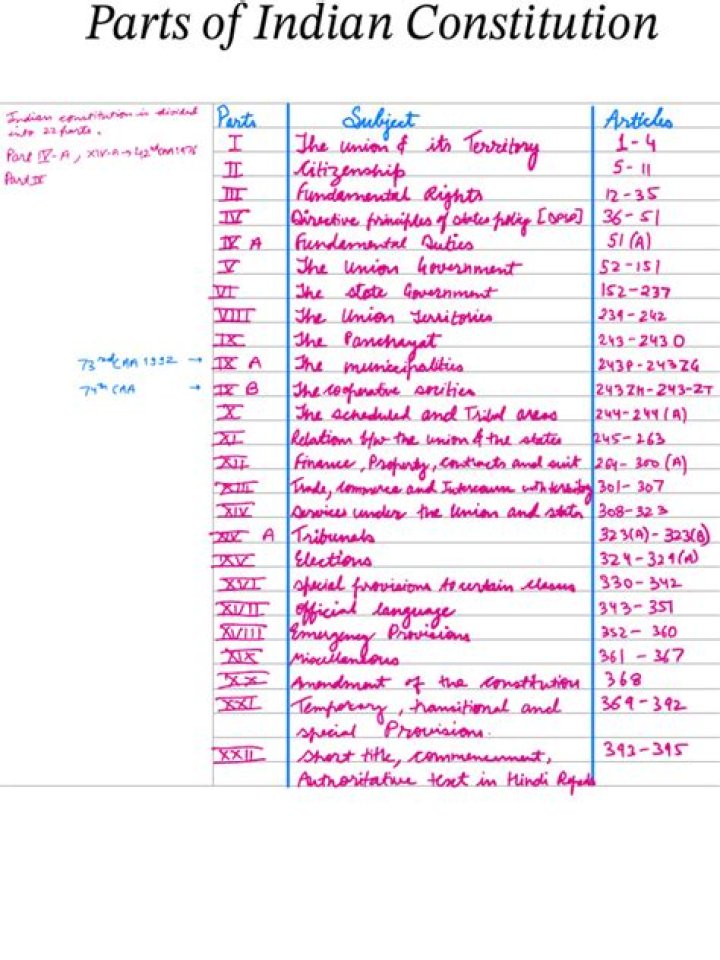 Parts of Indian Constitution
Indian constitution is divided
into 22 parts.
Part IV-A, XIV-A → 42nd CAA 1976
Part IX
Parts Subject Articles
I The Union & its Territory 1-4
II Citizenship 5-11
III Fundamental Rights 12-35
IV Directive principles of states policy [DPSP] 36-51
IV A Fundamental Duties 51(A)
V The Union Government 52-151
VI The state Government 152-237
VIII The Union Territories 239-242
IX The Panchayat 243-243O
73rd CAA 1992 → IX A The municipalities 243P-243ZG
74th CAA → IX B The cooperative socities 243ZH-243-ZT
X The scheduled and Tribal areas 244-244(A)
XI Relations b/w the union & the states 245-263
XII Finance, Property, contracts and suit 264-300(A)
XIII Trade, commerce and Intercourse with territory 301-307
XIV Services under the Union and state 308-323
XIV A Tribunals 323(A)-323(B)
XV Elections 324-329(A)
XVI special provisions to certain classes 330-342
XVII official language 343-351
XVIII Emergency Provisions 352-360
XIX Miscellaneous 361-367
XX Amendment of the constitution 368
XXI Temporary, transitional and 369-392
special Provisions.
XXII short title, commencement, 393-395
Authoritative text in Hindi